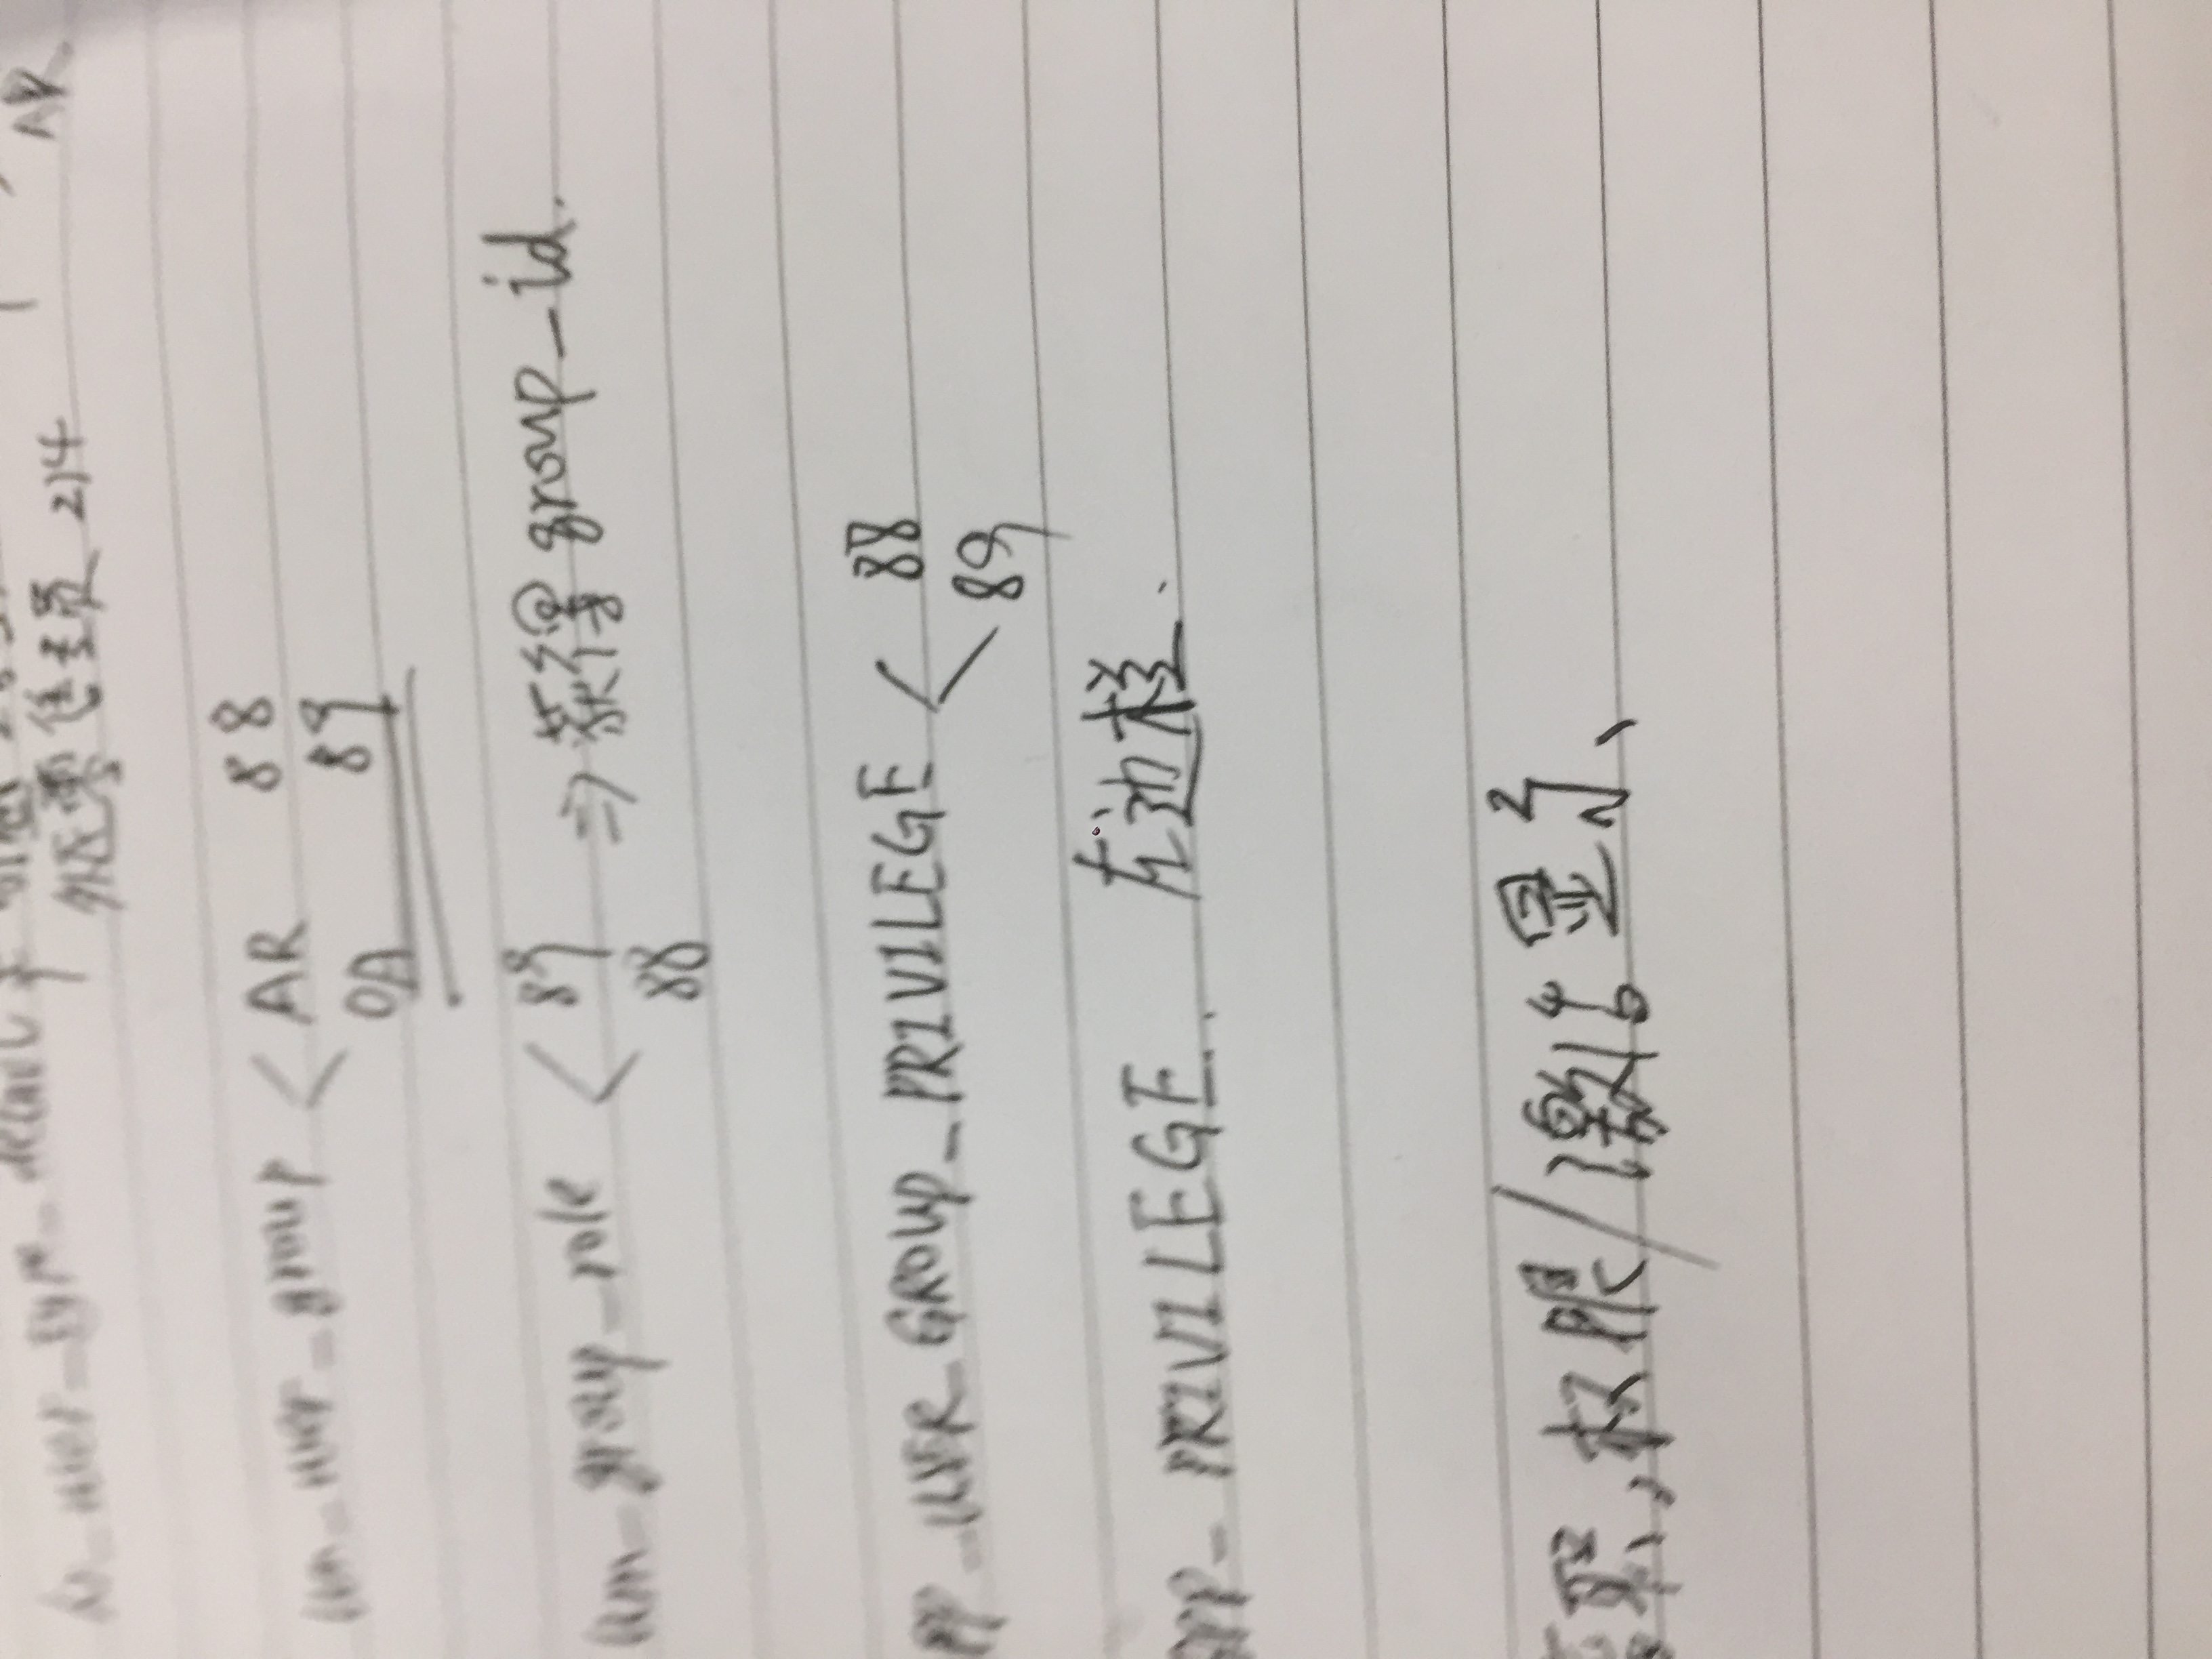 外区零售专员 214
AR
um_user_group < AR 88
OA 89
um_group_role < 89 => 获得 group_id.
88
PP_USER_GROUP_PRIVILEGE < 88
89
APP_PRIVILEGE. 左边栏.
职,权限/激活显示、